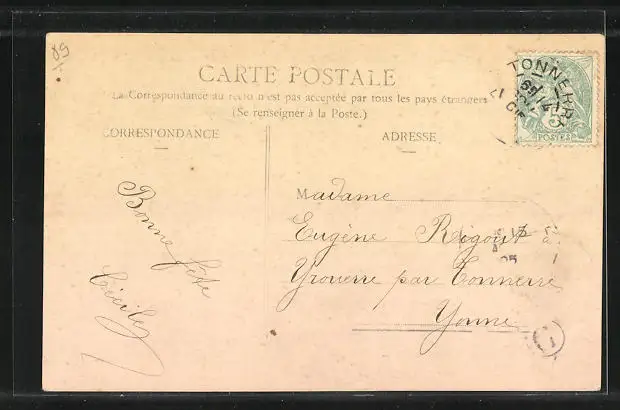 68
CARTE POSTALE
La Correspondance au recto n'est pas acceptée par tous les pays étrangers
(Se renseigner à la Poste.)
CORRESPONDANCE
ADRESSE
TONNERRE
5
POSTES
Bonne fête
Cécile
Madame
Eugène Rigout à
Yrouerre par Tonnerre
Yonne
1